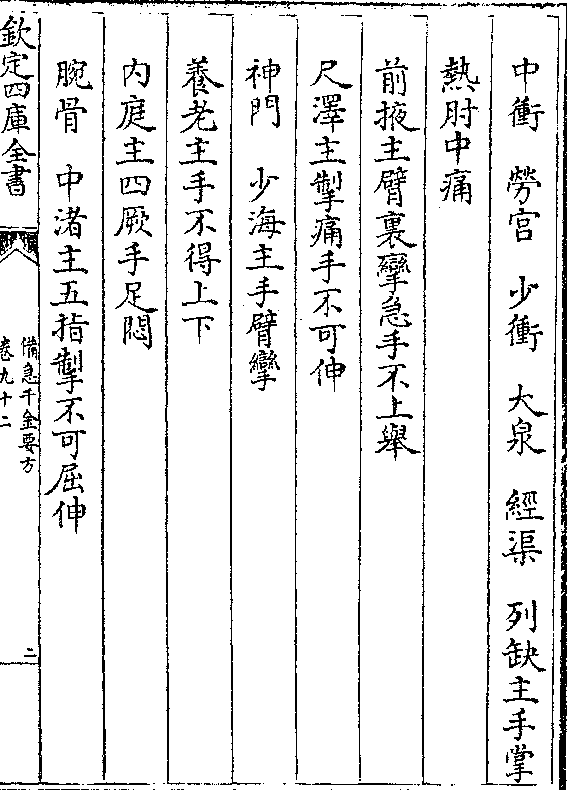 中衝　勞宫　少衝　大泉　經渠　列缺主手掌
熱肘中痛
前掖主臂裏攣急手不上舉
尺澤主掣痛手不可伸
神門　少海主手臂攣
養老主手不得上下
内庭主四厥手足悶
腕骨　中渚主五指掣不可屈伸
欽定四庫全書
備急千金要方
卷九十二
二